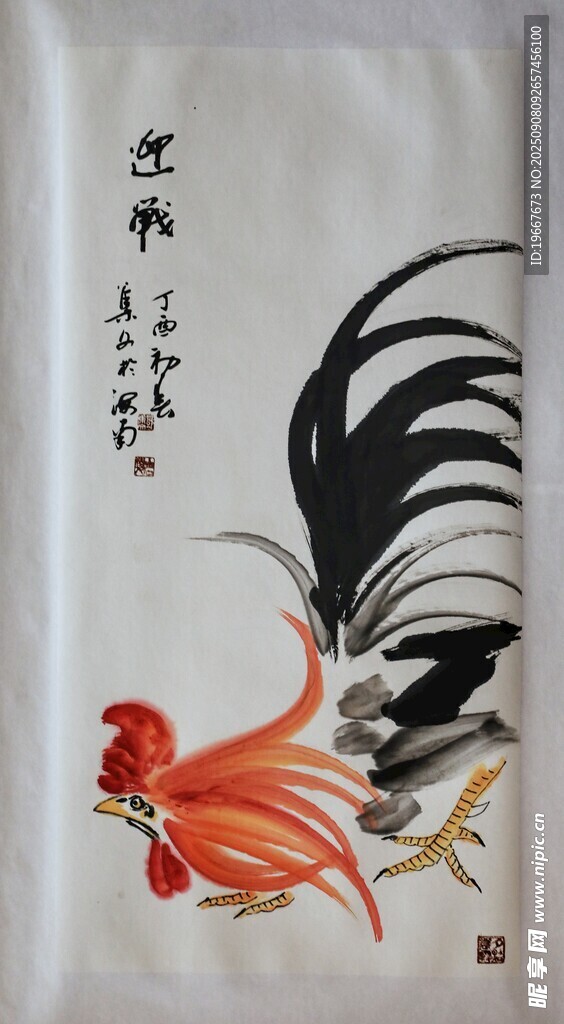 迎战
丁酉初春
集文於海南
ID:19667673 NO:20250908092657456100
昵享网 www.nipic.cn